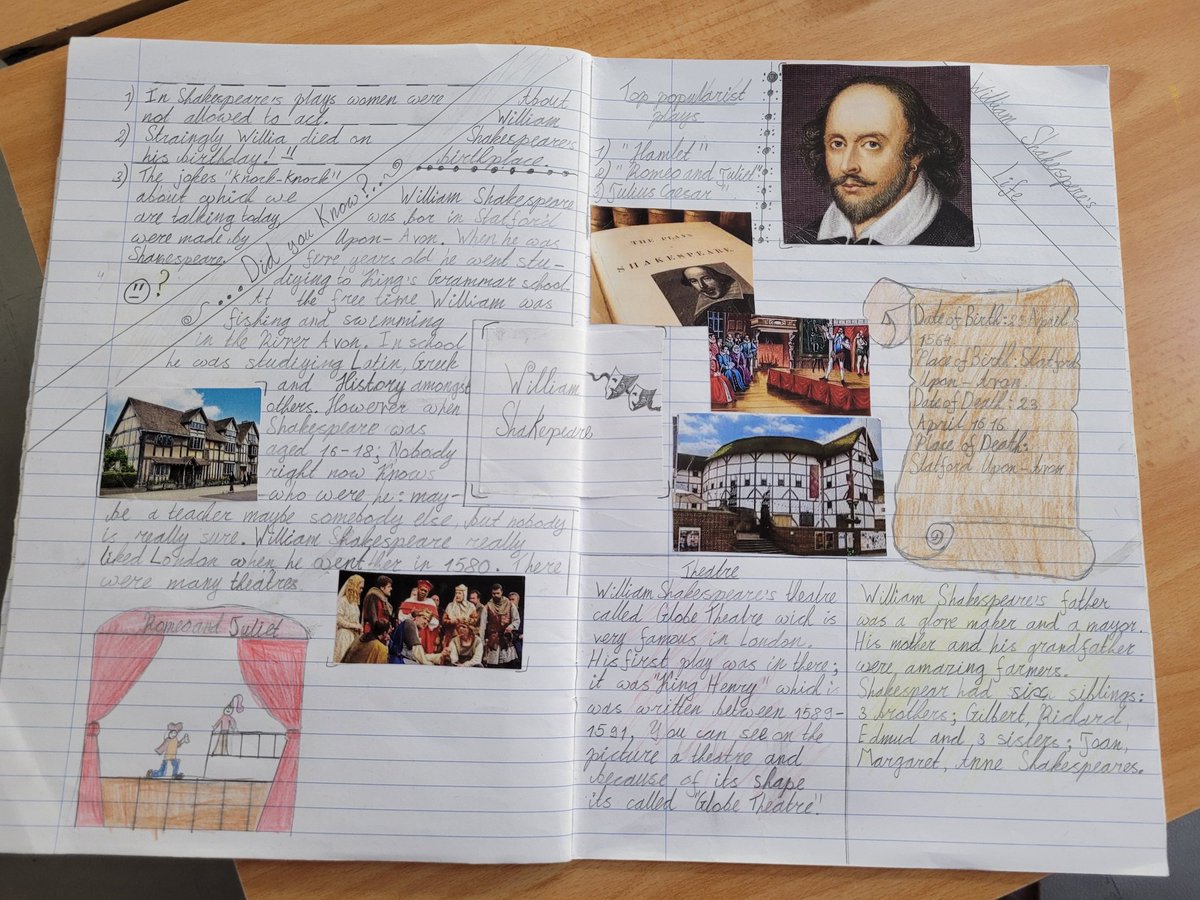 1) In Shakespeare's plays women were
not allowed to act.
2) Straingly Willia died on
his birthday.
3) The jokes "Knock-Knock"
about which we
are talking today
were made by
Shakespeare
?
Did you Know?...
About
William
Shakespeare's
birthplace.
William Shakespeare
was bor in Statford
Upon-Avon. When he was
five years old he went stu-
diying to King's Grammar school.
At the free time William was
fishing and swimming
in the River Avon. In school
he was studiying Latin, Greek
and History amongst
others. However when
Shakespeare was
aged 16-18; Nobody
right now Knows
who were he: may-
be a teacher maybe somebody else, but nobody
is really sure. William Shakespeare really
liked London when he went her in 1580. There
were many theatres.
Romeo and Juliet
William
Shakespeare
Top popularist
plays
1) "Hamlet"
2) "Romeo and Juliet"
3) "Julius Caesar"
THE PLAYS
SHAKESPEARE
William Shakespeare's
Life
Date of Birth: 23 April
1564
Place of Birth: Statford
Upon-Avon
Date of Death: 23
April 1616
Place of Death:
Statford Upon-Avon
Theatre
William Shakespeare's theatre
called Globe Theatre wich is
very famous in London.
His first play was in there;
it was "King Henry" which is
was written between 1589-
1591, You can see on the
picture a theatre and
because of its shape
its called "Globe Theatre".
William Shakespeare's father
was a glove maker and a mayor.
His mother and his grandfather
were amazing farmers.
Shakespear had six siblings:
3 brothers; Gilbert, Richard,
Edmud and 3 sisters; Joan,
Margaret, Anne Shakespeares.